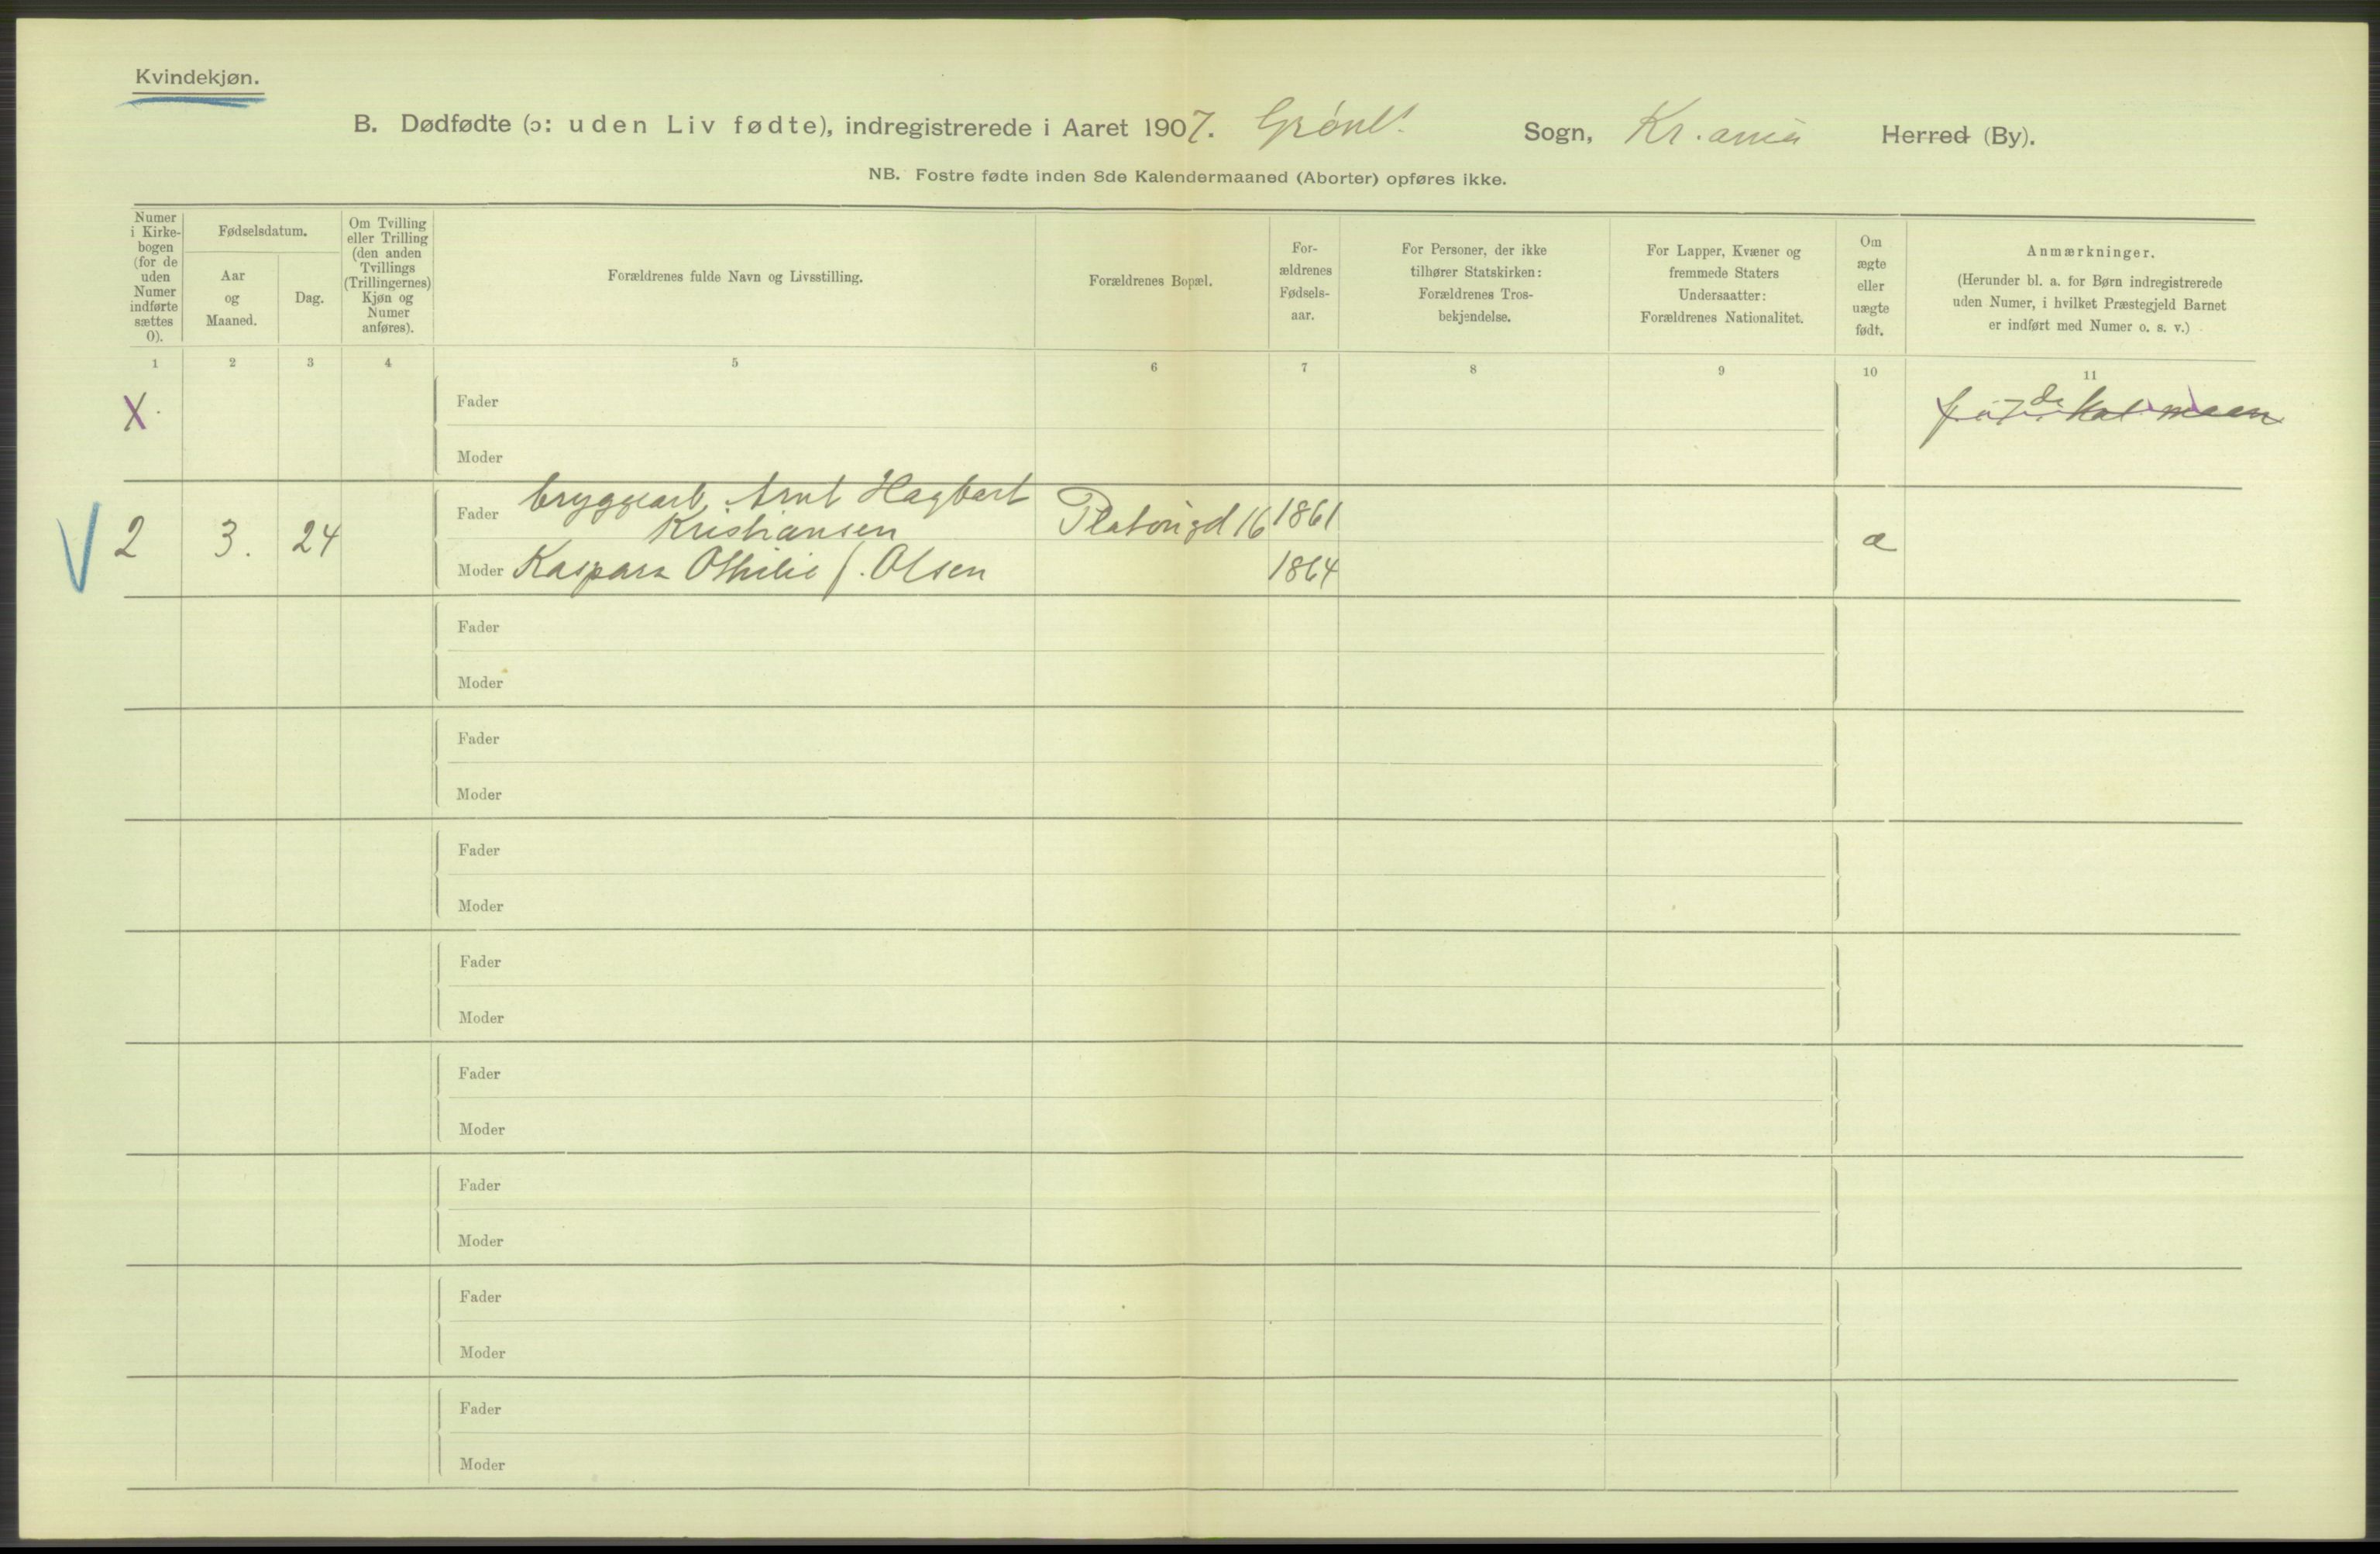 Kvindekjøn.
B. Dødfødte (ɔ: uden Liv fødte), indregistrerede i Aaret 1907. Grønl. Sogn, Kr.ania Herred (By).
NB. Fostre fødte inden 8de Kalendermaaned (Aborter) opføres ikke.
Numer i Kirke-bogen (for de uden Numer indførte sættes 0).
Fødselsdatum.
Aar og Maaned.
Dag.
Om Tvilling eller Trilling (den anden Tvillings (Trillingernes) Kjøn og Numer anføres).
Forældrenes fulde Navn og Livsstilling.
Forældrenes Bopæl.
For-ældrenes Fødsels-aar.
For Personer, der ikke tilhører Statskirken: Forældrenes Tros-bekjendelse.
For Lapper, Kvæner og fremmede Staters Undersaatter: Forældrenes Nationalitet.
Om ægte eller uægte født.
Anmærkninger.
(Herunder bl. a. for Børn indregistrerede uden Numer, i hvilket Præstegjeld Barnet er indført med Numer o. s. v.)
1 2 3 4 5 6 7 8 9 10 11
X Fader
Moder
Fader bryggearb. Arnt Hagbart
Kristiansen Platousgd 16 1861
2 3. 24 æ
Moder Kaspara Othilie f. Olsen 1864
Fader
Moder
Fader
Moder
Fader
Moder
Fader
Moder
Fader
Moder
Fader
Moder
Fader
Moder
Fader
Moder